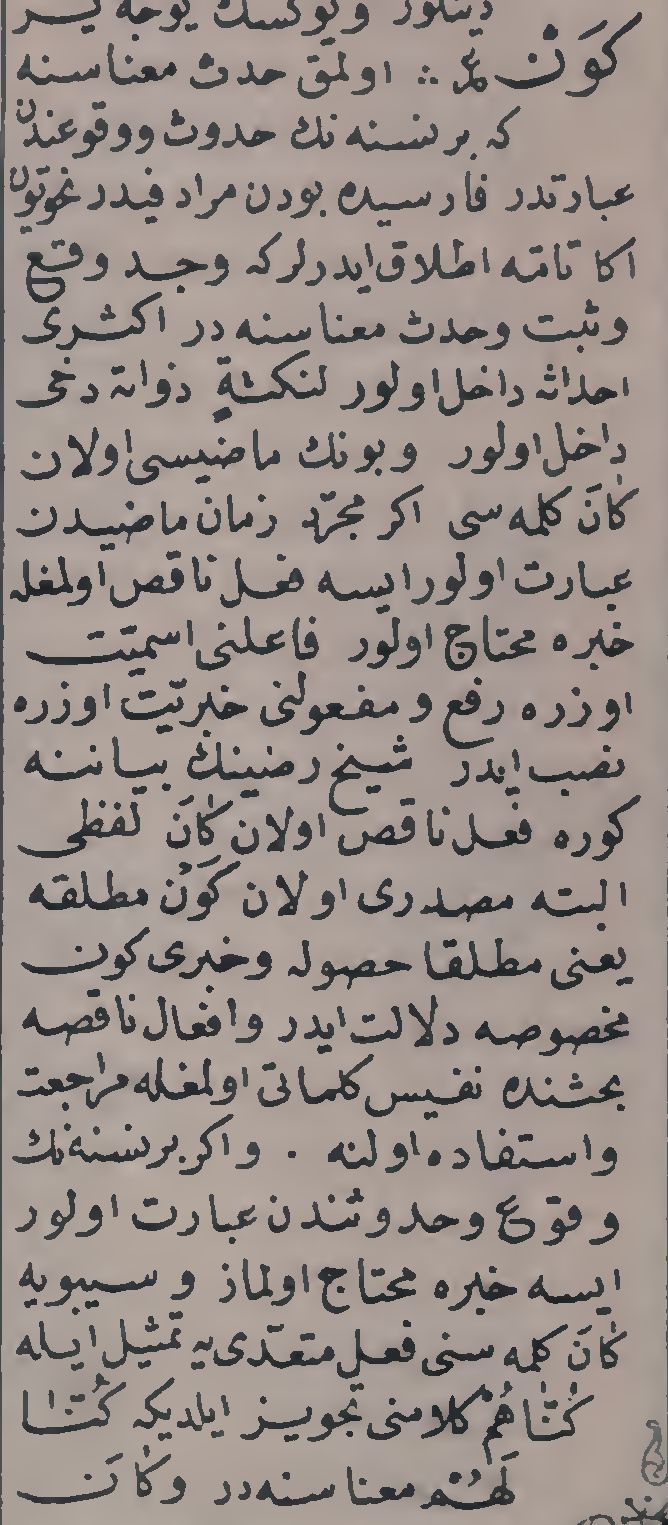 دینلور و یوکسك یوجه یـر
كَوْن ع م ؞ اولمق حدث معناسنه
که بر نسنه نك حدوث ووقوعندن
عبارتدر فارسیده بودن مرادفیدر نحویون
اکا تامّه اطلاق ایدرلرکه وجـد وقـع
وثبت وحدث معناسنه در اکثری
احداثه داخل اولور لنکتةٍ ذواته دخی
داخل اولور وبونك ماضیسی اولان
كَانَ کلمه سی اکر مجرّد زمان ماضیدن
عبارت اولور ایسه فعـل ناقص اولمغله
خبره محتاج اولور فاعلنی اسمیّت
اوزره رفع و مفعولنی خبریّت اوزره
نصب ایدر شیخ رضینك بیاننه
کوره فعل ناقص اولان كَانَ لفظی
البته مصدری اولان كَوْن مطلقه
یعنی مطلقا حصوله وخبری کون
مخصوصه دلالت ایدر وافعال ناقصه
بحثنده نفیس کلماتی اولمغله مراجعت
واستفاده اولنه . واکر بر نسنه نك
وقوع وحدوثندن عبارت اولور
ایسه خبره محتاج اولماز وسیبویه
كَانَ کلمه سنی فعل متعدّی یه تمثیل ایله
كُنَّاهُمْ کلامنی تجویـز ایلدیکه كُنَّا
لَهُمْ معناسنه در وكَانَ